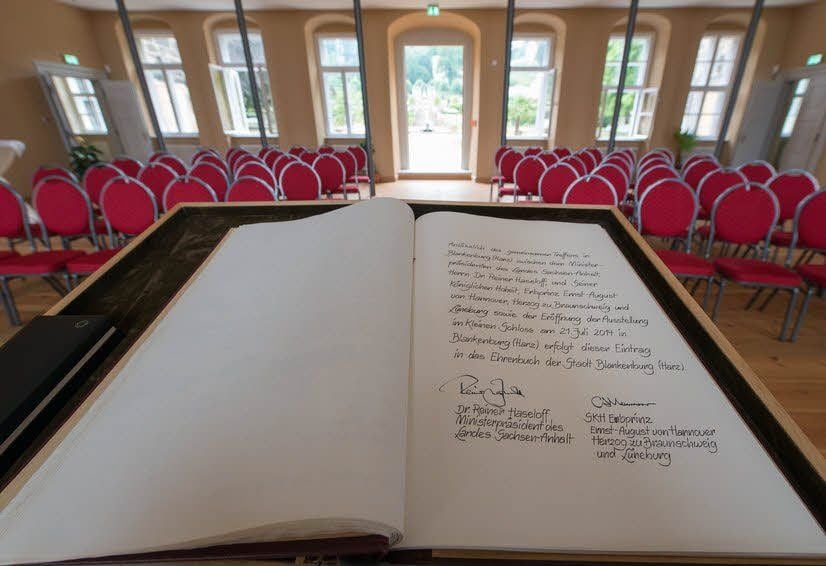 Anlässlich des gemeinsamen Treffens in
Blankenburg (Harz) zwischen dem Minister-
präsidenten des Landes Sachsen-Anhalt,
Herrn Dr. Reiner Haseloff, und Seiner
Königlichen Hoheit, Erbprinz Ernst-August
von Hannover, Herzog zu Braunschweig und
Lüneburg sowie der Eröffnung der Ausstellung
im Kleinen Schloss am 21. Juli 2014 in
Blankenburg (Harz) erfolgt dieser Eintrag
in das Ehrenbuch der Stadt Blankenburg (Harz).
Dr. Reiner Haseloff
Ministerpräsident des
Landes Sachsen-Anhalt
SKH Erbprinz
Ernst-August von Hannover
Herzog zu Braunschweig
und Lüneburg